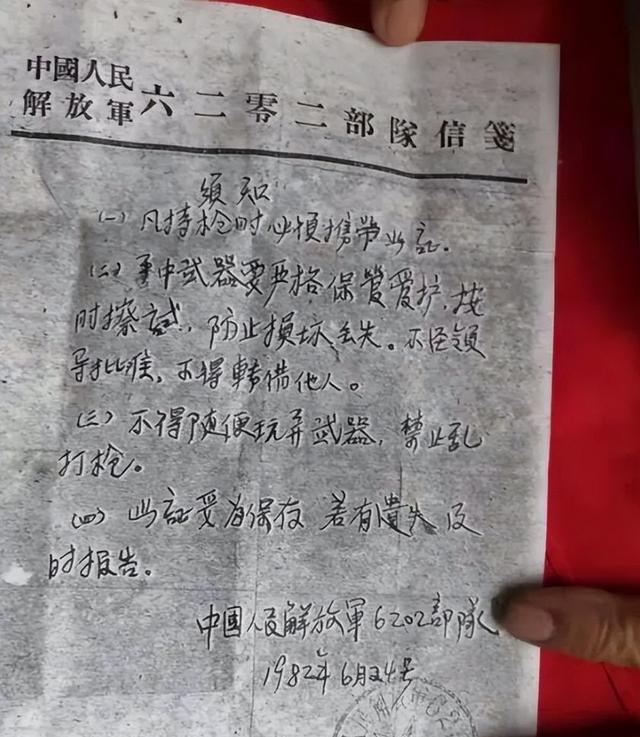 中國人民
解放軍六二零二部隊信箋
須知
(一) 凡持枪时必須携带此証.
(二) 手中武器要严格保管爱护,按
时擦試,防止損坏丢失。不经領
导批准,不得轉借他人。
(三) 不得随便玩弄武器,禁止乱
打枪。
(四) 此証妥为保存 若有遺失 及
时报告。
中國人民解放軍6202部隊
1982年6月24号